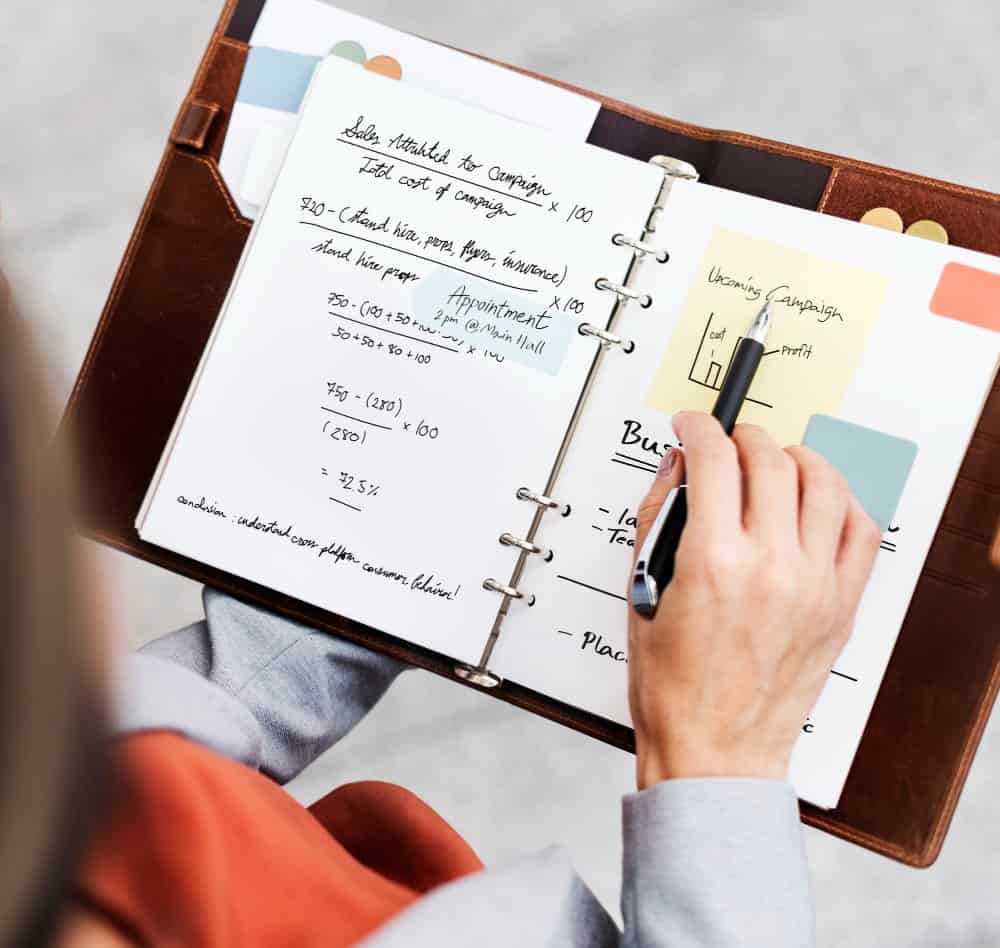 Sales Attributed to Campaign
Total cost of campaign
× 100
720 - (stand hire, props, flyers, insurance)
stand hire props
× 100
Appointment
2 pm @ Main Hall
750 - (100 + 50 +
× 100
50 + 50 + 80 + 100
750 - (280)
(280)
× 100
= 72.5%
conclusion : understand cross platform consumer behavior!
Upcoming Campaign
cost
profit
Busi
- 
- Tea
- Plac